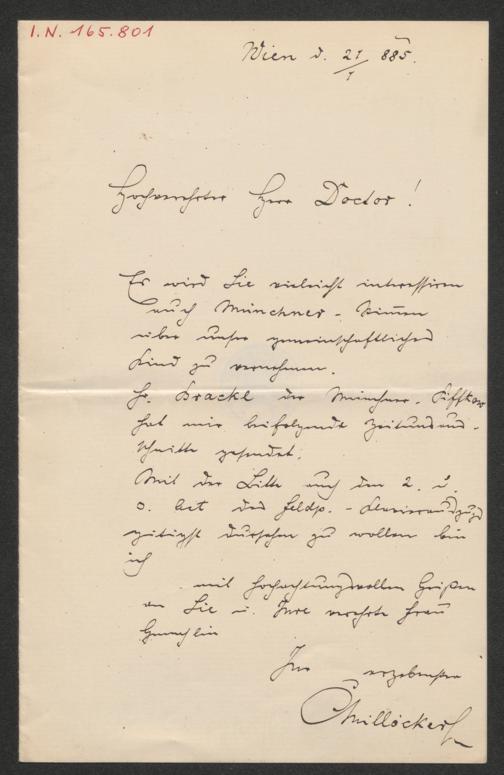 I.N. 165.801
Wien d. 21/1 885.
Hochverehrter Herr Doctor!
Es wird Sie vielleicht interessiren
auch Münchner-Stimmen
über unser gemeinschaftliches
Kind zu vernehmen.
Hr. Brackl der Münchner-
hat mir beifolgende Zeitungsaus-
schnitte gesendet.
Mit der Bitte auch den 2. u.
3. Act des Feldp.-Klavierauszugs
gütigst durchsehen zu wollen bin
ich
mit hochachtungsvollen Grüßen
an Sie u. Ihre verehrte Frau
Gemahlin
Ihr ergebenster
CMillöcker